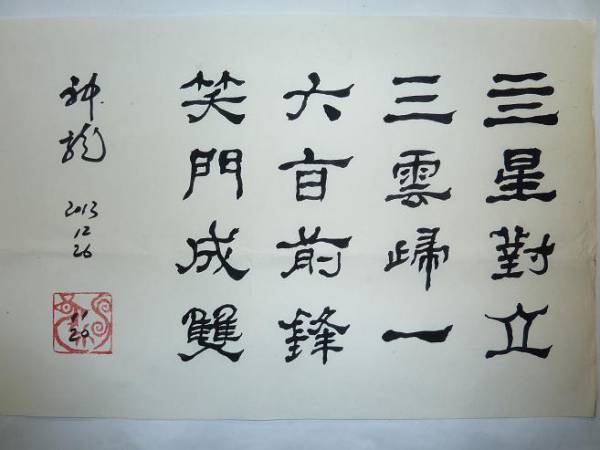 亖星對立
三雲歸一
六盲前鋒
笑門成雙
神龍
2013
12
26